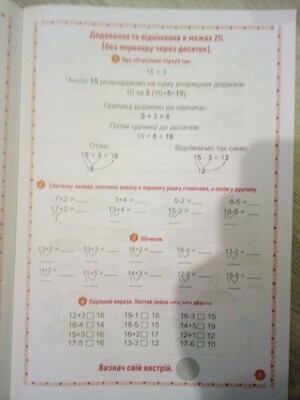 Додавання та віднімання в межах 20.
(без переходу через десяток).
1 При обчисленні міркуй так:
15 + 3
Число 15 розкладаємо на суму розрядних доданків:
10 та 5 (10+5=15)
Одиниці додаємо до одиниць:
5 + 3 = 8
Потім одиниці до десятків:
10 + 8 = 18
Отже: Віднімаємо так само:
15 + 3 = 18 15 - 3 = 12
18 12
2 Спочатку знайди значення виразу в першому рядку стовпчика, а потім у другому.
7+2 = 3+4 = 5-2 = 8-6 =
17+2 = 13+4 = 15-2 = 18-6 =
3 Обчисли.
13+2 = 13+3 = 16+2 = 19-3 = 13-2 =
11+5 = 14+3 = 15-5 =
4 Порівняй вирази. Постав знаки «>», «<» або «=»
12+3 16 19-1 18 16-3 15
18-4 14 18-5 15 14+5 19
15+3 16 16+2 17 12+1 12
17-5 16 13-3 12 17-6 10
Визнач свій настрій.